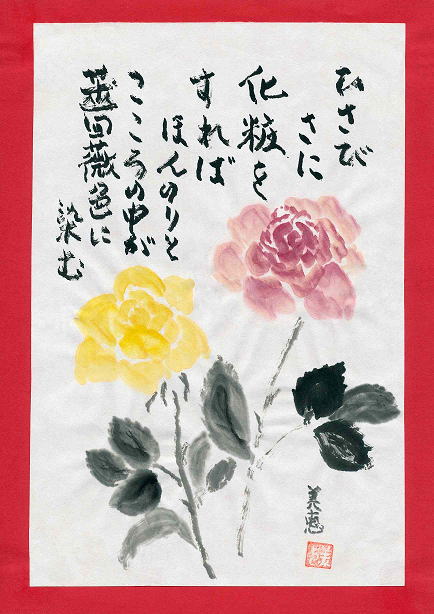 ひさび
さに
化粧を
すれば
ほんのりと
こころの中が
薔薇色に
染む
美恵